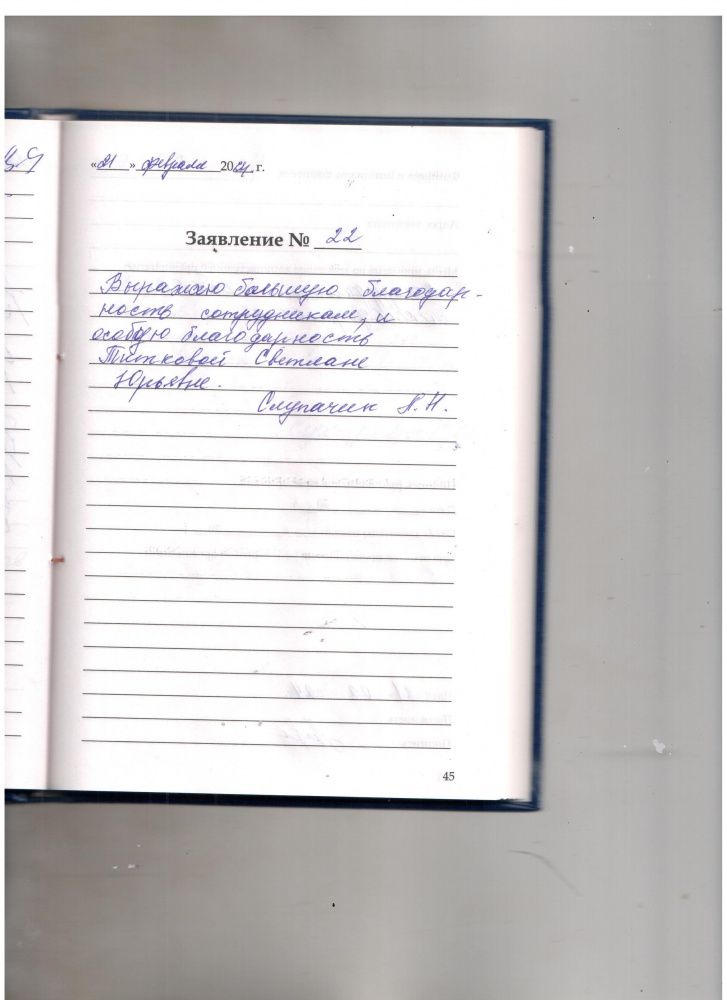 «21» февраля 2024 г.
Заявление № 22
Выражаю большую благодар-
ность сотрудникам, и
особую благодарность
Титковой Светлане
Юрьевне.
Слупачик Н. Н.
45